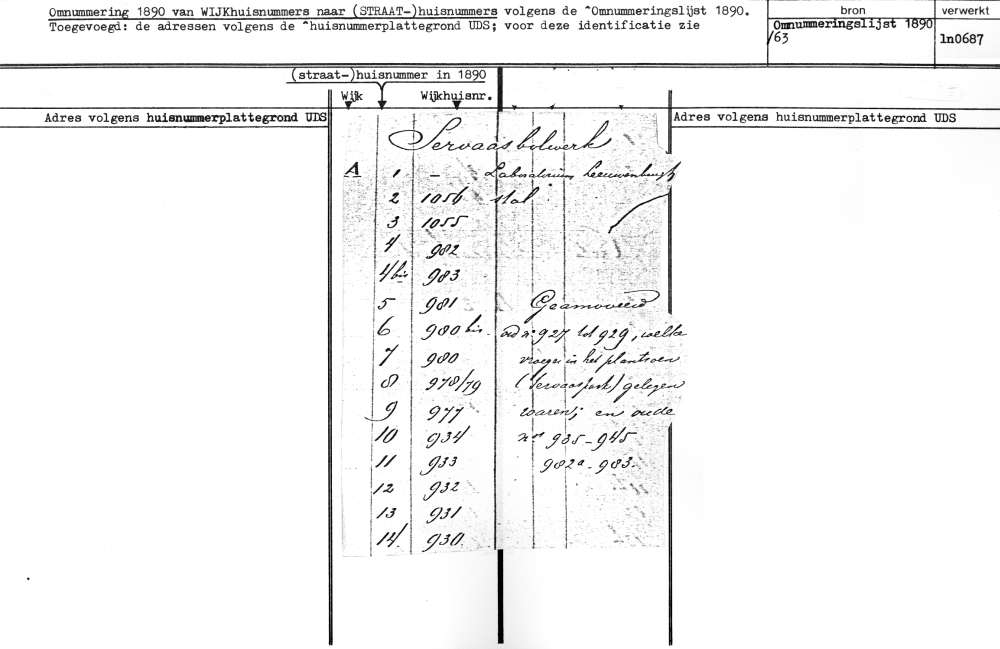 Omnummering 1890 van WIJKhuisnummers naar (STRAAT-)huisnummers volgens de ^Omnummeringslijst 1890.
Toegevoegd: de adressen volgens de ^huisnummerplattegrond UDS; voor deze identificatie zie
bron
Omnummeringslijst 1890
/63
verwerkt
ln0687
(straat-)huisnummer in 1890
Wijk Wijkhuisnr.
Adres volgens huisnummerplattegrond UDS
Adres volgens huisnummerplattegrond UDS
Servaasbolwerk
A 1 – Laboratorium Leeuwenburgh
2 1056 stal
3 1055
4 982
4bis 983
5 981 Geamoveerd
6 980 bis. oud n.os 927 tot 929, welke
7 980 vroeger in het plantsoen
8 978/79 (Servaaspark) gelegen
9 977 waren; en oude
10 934 nos 935-945
11 933 982a-983.
12 932
13 931
14 930